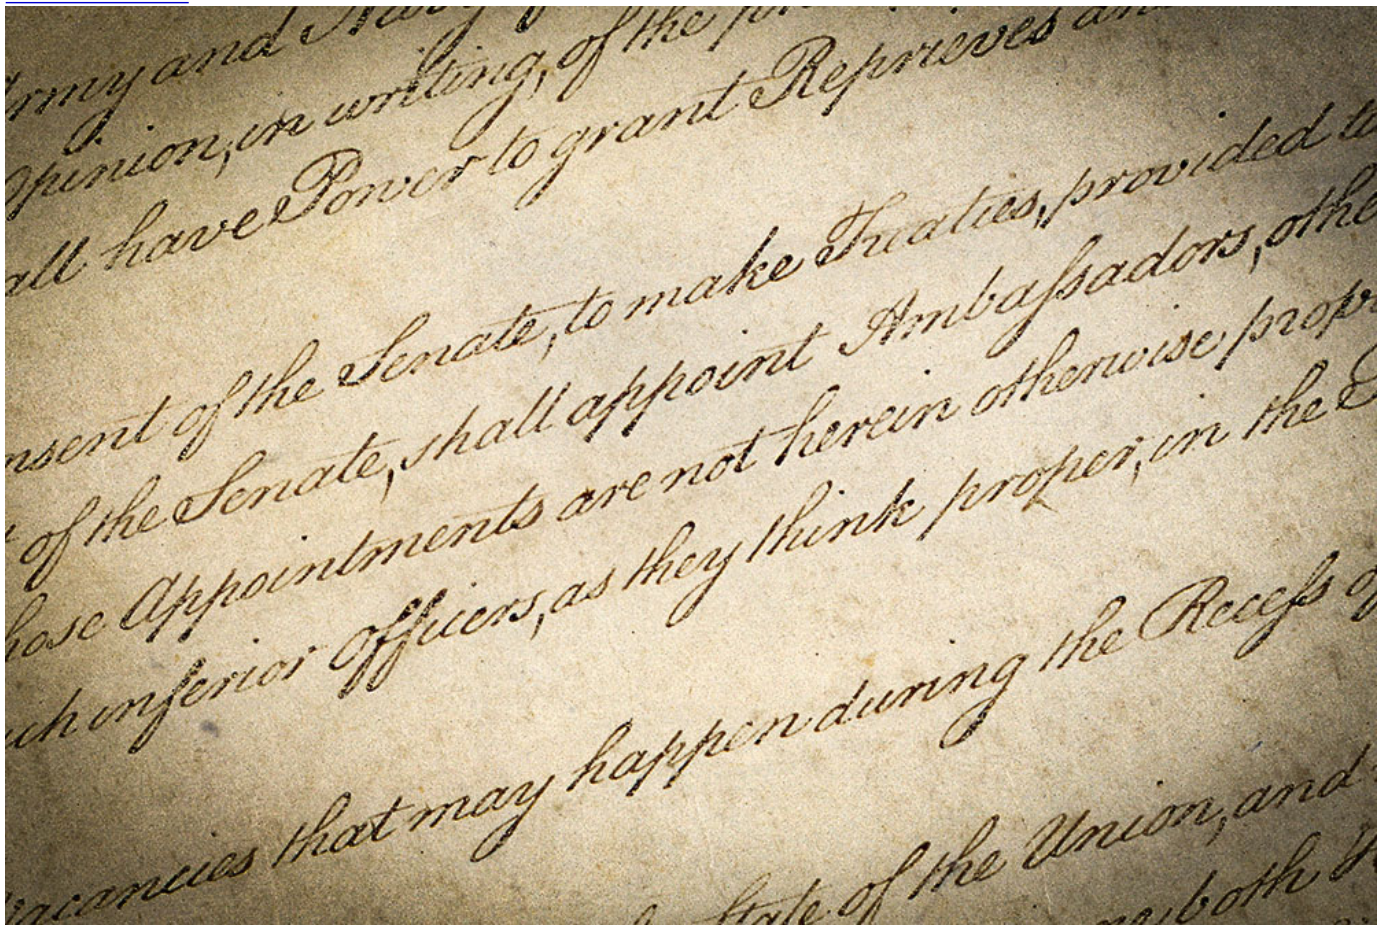 Army and Navy
Opinion, in writing, of the
all have Power to grant Reprieves an
nsent of the Senate, to make Treaties, provided t
of the Senate, shall appoint Ambaſsadors, othe
hose Appointments are not herein otherwise prov
uch inferior Officers, as they think proper, in the
acancies that may happen during the Receſs of
State of the Union, and
both